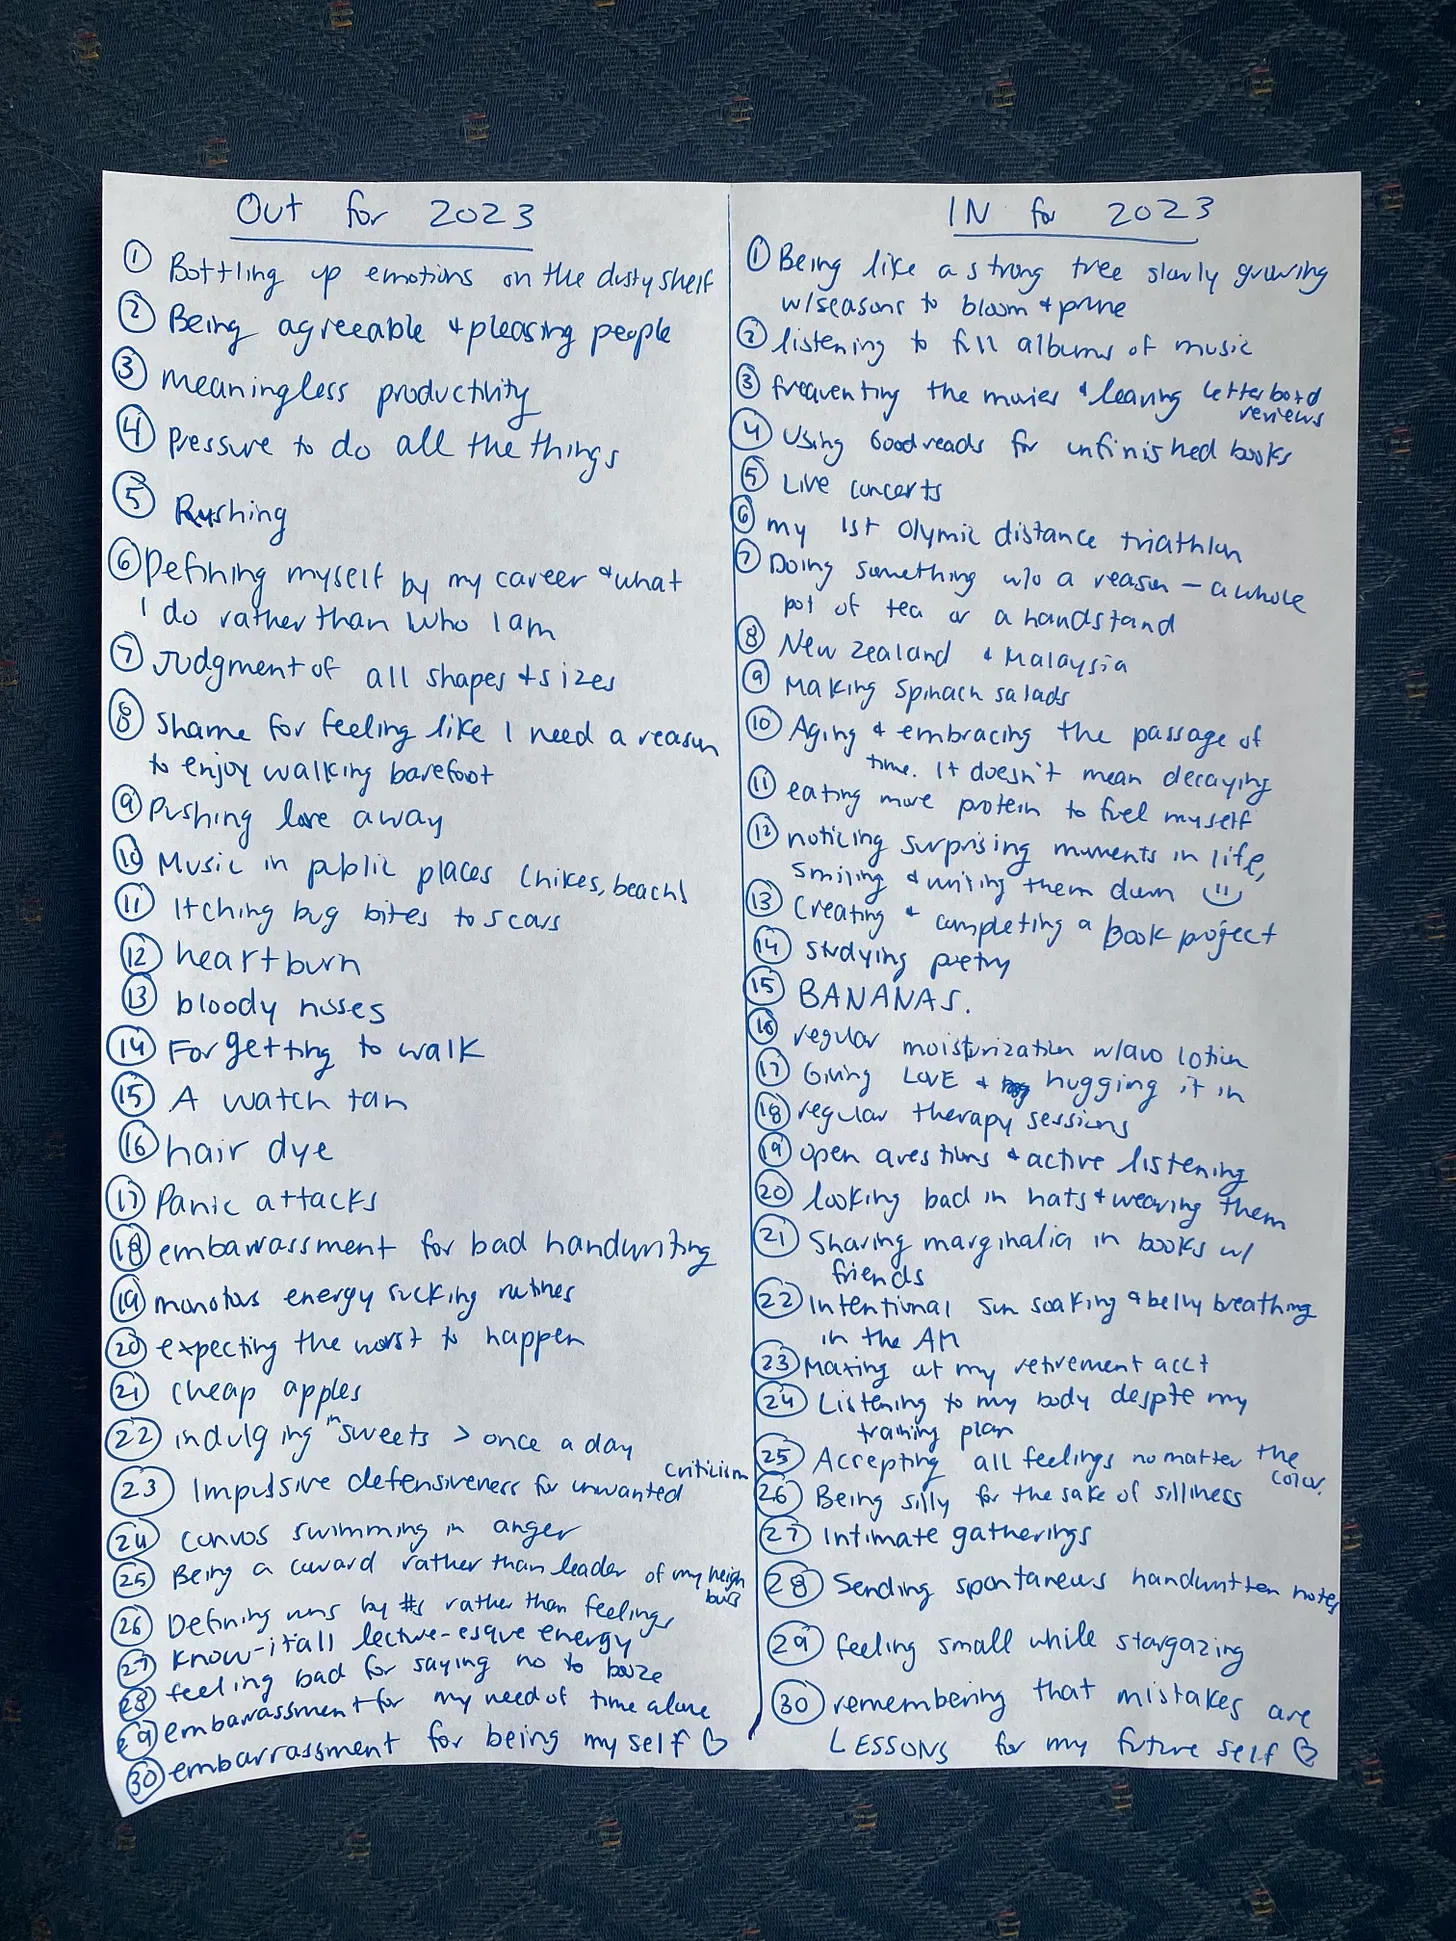 Out for 2023
① Bottling up emotions on the dusty shelf
② Being agreeable + pleasing people
③ meaningless productivity
④ Pressure to do all the things
⑤ Rushing
⑥ Defining myself by my career + what
I do rather than who I am
⑦ Judgment of all shapes + sizes
⑧ Shame for feeling like I need a reason
to enjoy walking barefoot
⑨ Pushing love away
⑩ Music in public places (hikes, beach)
⑪ Itching bug bites to scars
⑫ heartburn
⑬ bloody noses
⑭ Forgetting to walk
⑮ A watch tan
⑯ hair dye
⑰ Panic attacks
⑱ embarassment for bad handwriting
⑲ monotous energy sucking routines
⑳ expecting the worst to happen
㉑ cheap apples
㉒ indulging in sweets > once a day
㉓ Impulsive defensiveness for unwanted criticism
㉔ convos swimming in anger
㉕ Being a coward rather than leader of my neighbors
㉖ Defining runs by #s rather than feelings
㉗ know-it all lecture-esque energy
㉘ feeling bad for saying no to booze
㉙ embarrassment for my need of time alone
㉚ embarrassment for being my self ♡
IN for 2023
① Being like a strong tree slowly growing
w/seasons to bloom + prune
② listening to full albums of music
③ frequenting the movies + leaving letterboxd
reviews
④ Using Goodreads for unfinished books
⑤ Live concerts
⑥ my 1st Olymic distance triathlon
⑦ Doing something w/o a reason – a whole
pot of tea or a handstand
⑧ New Zealand + Malaysia
⑨ Making spinach salads
⑩ Aging + embracing the passage of
time. It doesn't mean decaying
⑪ eating more protein to fuel myself
⑫ noticing surprising moments in life,
smiling + writing them down
⑬ Creating + completing a book project
⑭ studying poetry
⑮ BANANAS.
⑯ regular moisturization w/avo lotion
⑰ Giving LOVE + hugging it in
⑱ regular therapy sessions
⑲ open questions + active listening
⑳ looking bad in hats + wearing them
㉑ Sharing marginalia in books w/
friends
㉒ Intentional sun soaking + belly breathing
in the AM
㉓ Maxing out my retirement acct
㉔ Listening to my body despite my
training plan
㉕ Accepting all feelings no matter the
color.
㉖ Being silly for the sake of silliness
㉗ Intimate gatherings
㉘ Sending spontaneous handwritten notes
㉙ feeling small while stargazing
㉚ remembering that mistakes are
LESSONS for my future self ♡